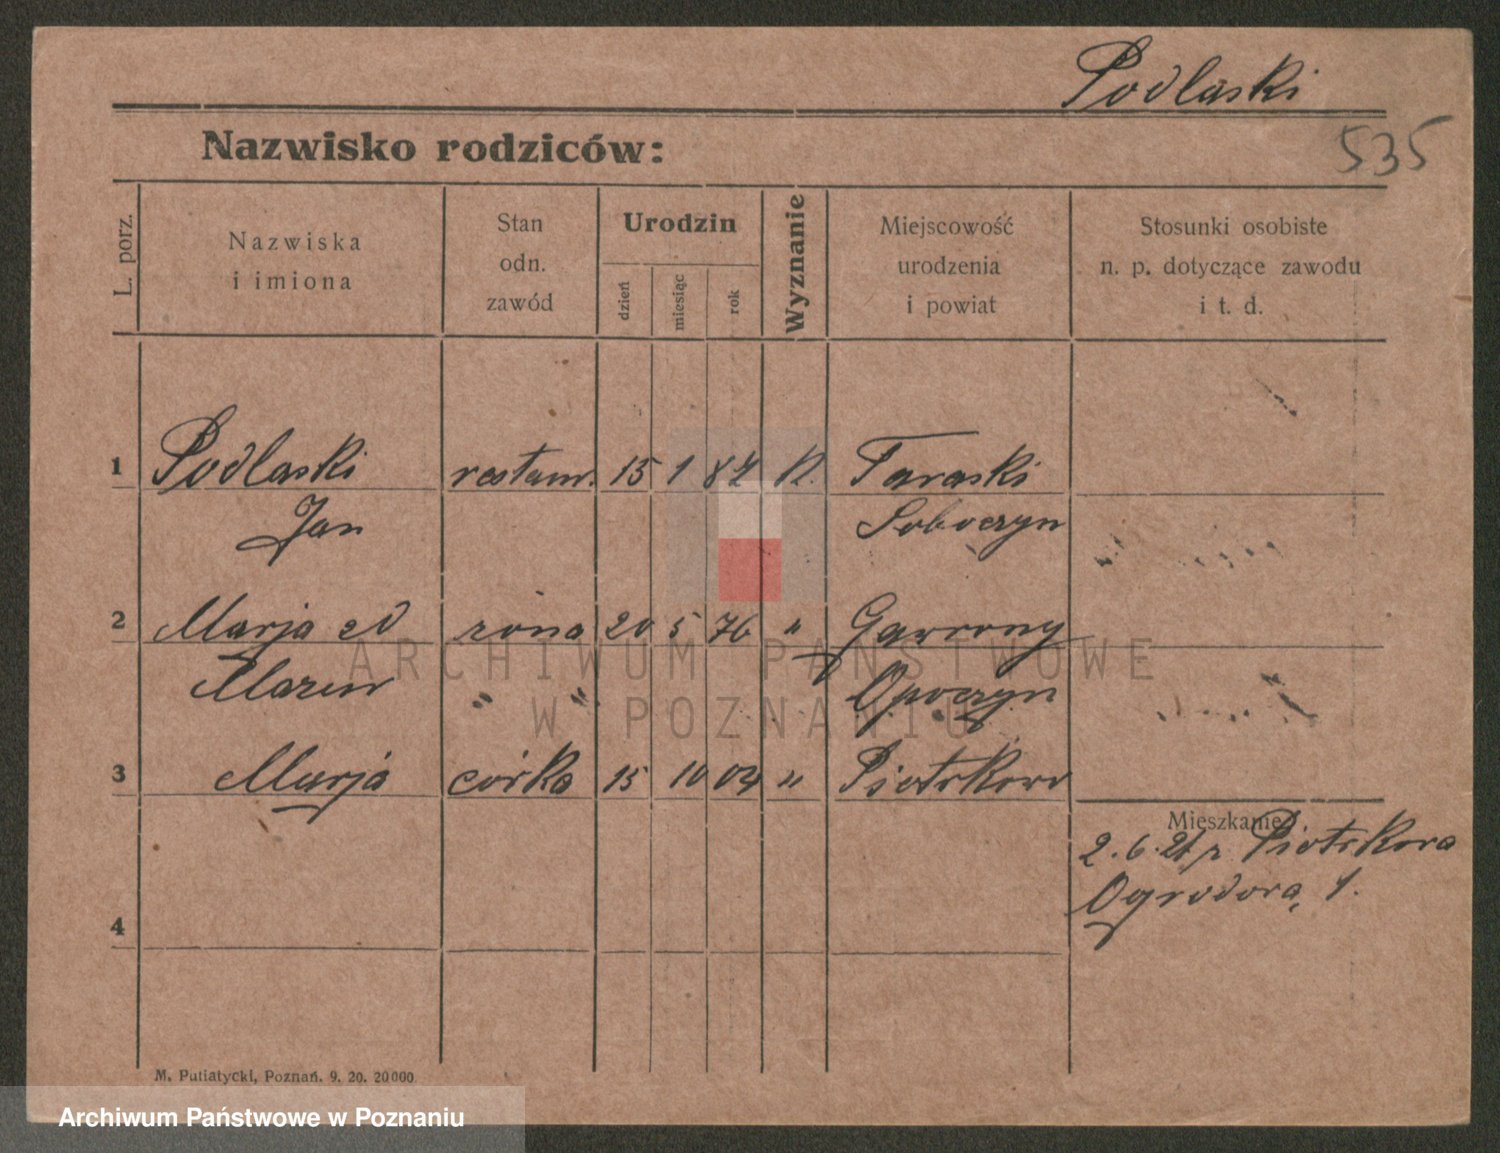 Podlaski
535
Nazwisko rodziców:
L. porz.
Nazwiska
i imiona
Stan
odn.
zawód
Urodzin
dzień
miesiąc
rok
Wyznanie
Miejscowość
urodzenia
i powiat
Stosunki osobiste
n. p. dotyczące zawodu
i t. d.
1 Podlaski restaur. 15 1 87 kl. Taraski
Jan
2 Marja żona 20 5 76 "
" "
Opoczyn
3 Marja córka 15 10 04 " Piotrków
Mieszkanie
2. 6. 21 z Piotrkowa
Ogrodowa 1.
4
M. Putiatycki, Poznań. 9. 20. 20000
ARCHIWUM PAŃSTWOWE
W POZNANIU
Archiwum Państwowe w Poznaniu